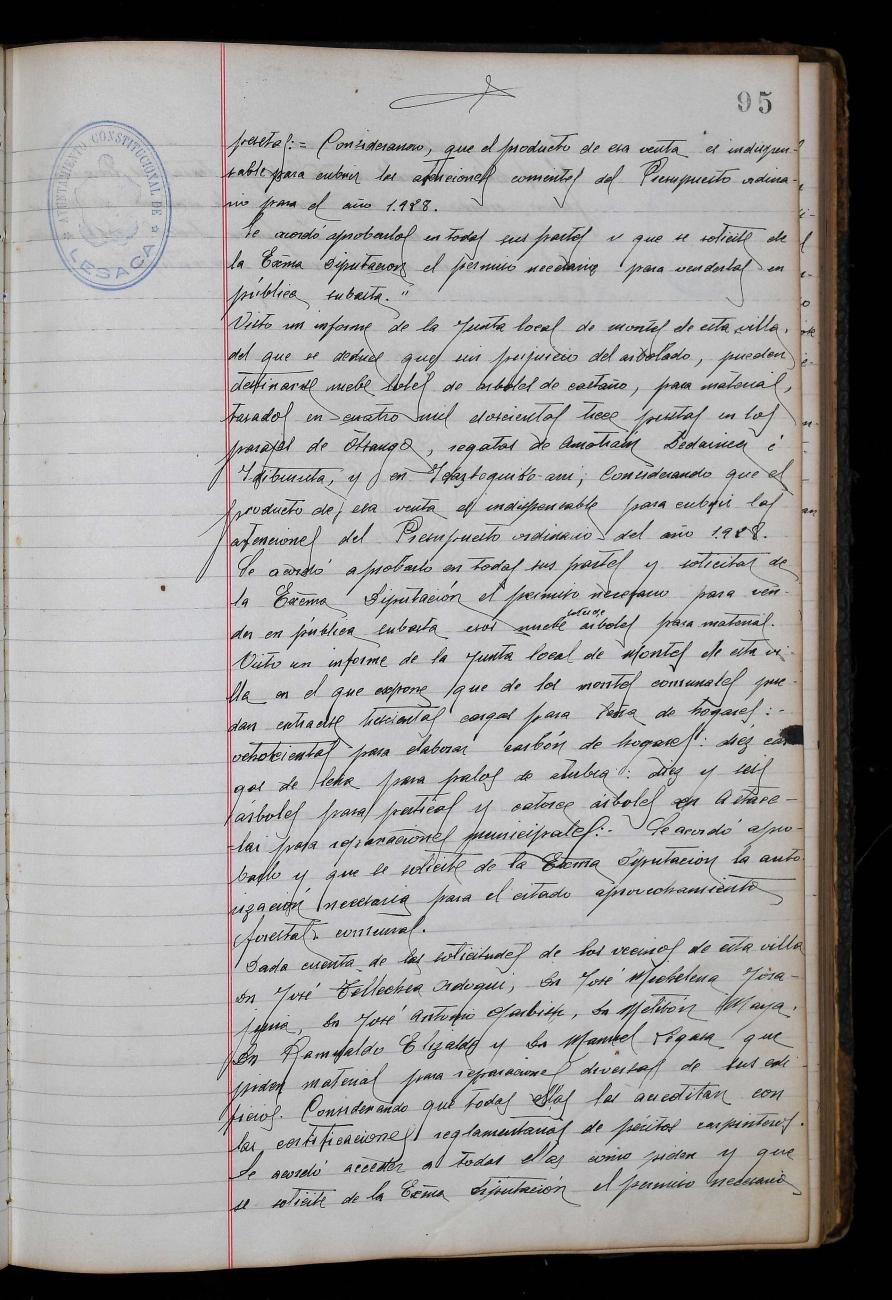 95
AYUNTAMIENTO CONSTITUCIONAL DE
LESACA
pesetas:= Considerando, que el producto de esa venta es indispen-
sable para cubrir las atenciones corrientes del Presupuesto ordina-
rio para el año 1.928.
Se acordó aprobarlos en todas sus partes y que se solicite de
la Exma Diputacion el permiso necesario para venderlas en
pública subasta."
Visto un informe de la Junta local de montes de esta villa,
del que se deduce que sin perjuicio del arbolado, pueden
destinarse nuebe lotes de arboles de castaño, para material,
tasados en cuatro mil doscientas trece pesetas en los
parajes de Otsango, regatas de Amotrain Bedainea é
y en considerando que el
producto de esa venta es indispensable para cubrir las
atenciones del Presupuesto ordinario del año 1.928.
Se acordó aprobarlo en todas sus partes y solicitar de
la Exema Diputación el permiso necesario para ven-
der en pública subasta esos nuebe lotes de arboles para material.
Visto un informe de la Junta local de Montes de esta vi-
lla en el que expone que de los montes comunales pue-
dan extraerse trescientas cargas para leña de hogares:-
ochocientas para elaborar carbón de hogares: diez car
gas de leña para palos de alubia: diez y seis
árboles para pértigas y catorce árboles en
para reparaciones municipales:- Se acordó apro-
barlo y que se solicite de la Exma Diputacion la auto-
rización necesaria para el citado aprovechamiento
forestal comunal.
Dada cuenta de las solicitudes de los vecinos de esta villa
Dn José Tellechea Ordoqui, Dn José Michelena
Dn José Antonio Dn Melitón Maya,
Dn Ramualdo Elizalde y Dn Manuel Legasa que
piden material para reparaciones diversas de sus edi
ficios. Considerando que todas ellas las acreditan con
las certificaciones reglamentarias de peritos carpinteros.
Se acordó acceder a todas ellas como piden y que
se solicite de la Exma Diputación el permiso necesario